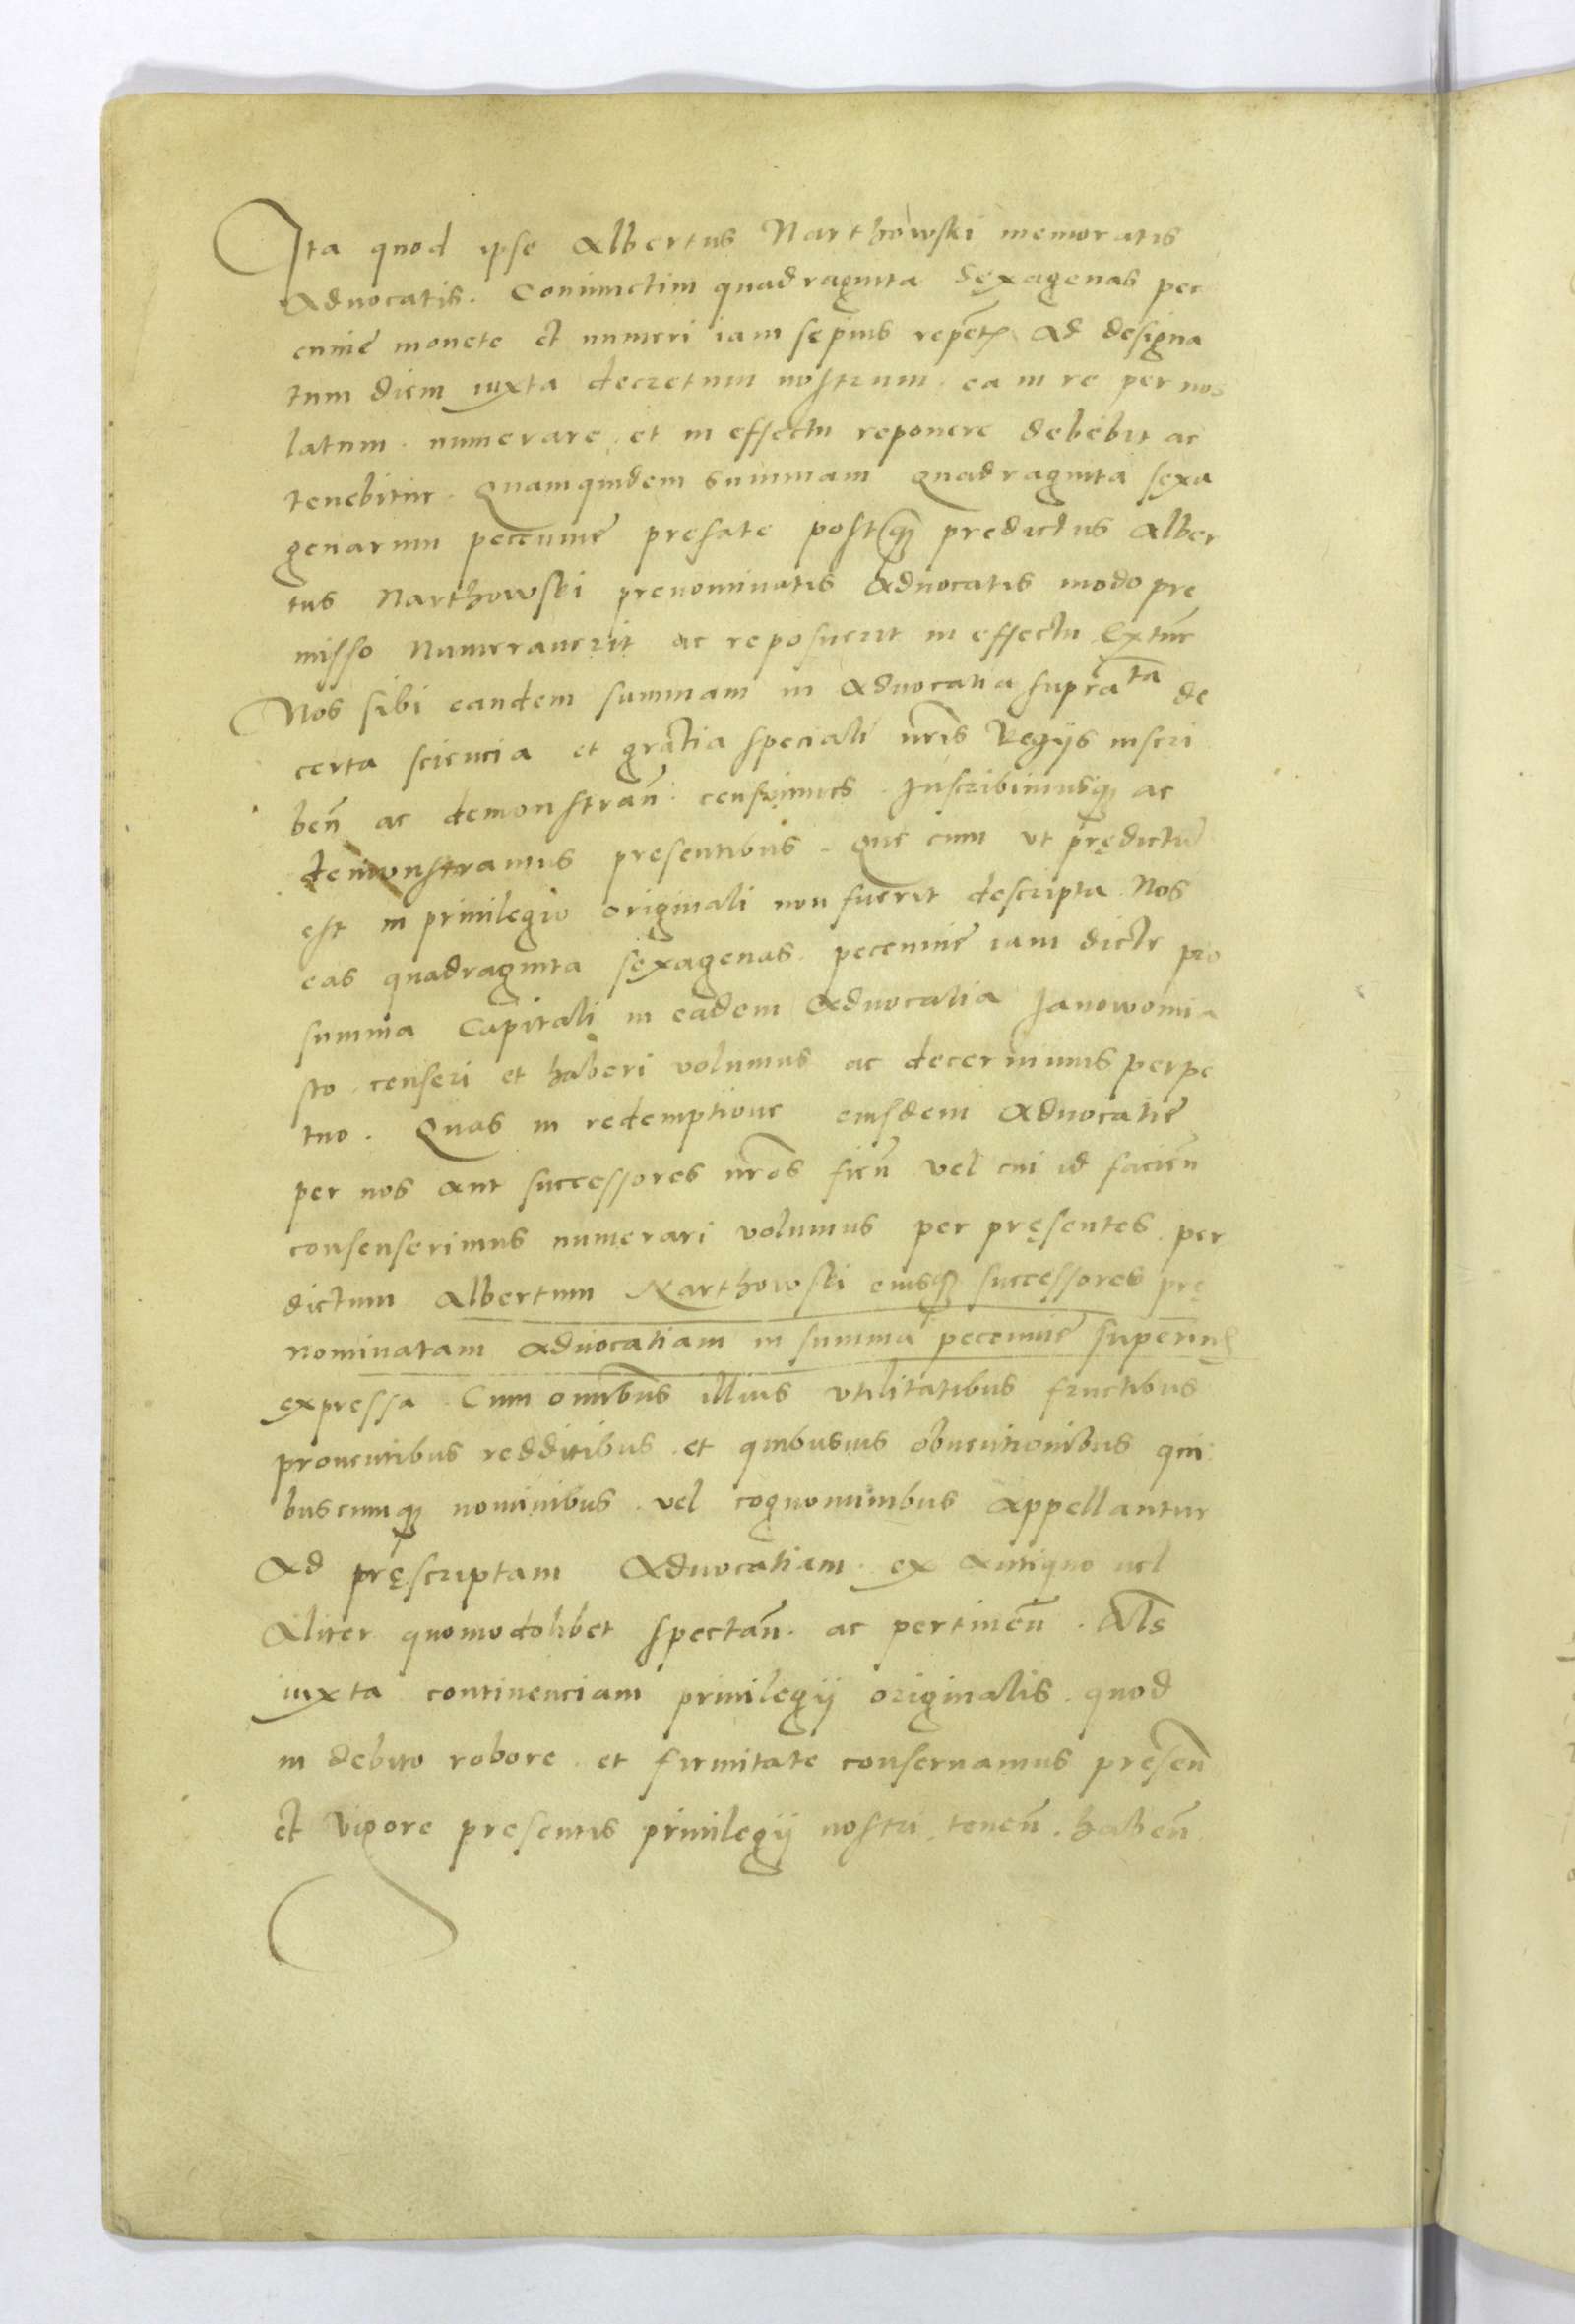 Ita quod ipse Albertus Narthowski memoratis
Aduocatis. Coniunctim quadraginta Sexagenas pec
cunie monete et numeri iam sepius repetitę Ad designa
tum diem iuxta decretum nostrum ea in re per nos
latum. numerare, et in effectu reponere debebit ac
tenebitur. Quamquidem summam quadraginta sexa
genarum peccunie prefate postq̃ȝ predictus Alber
tus Narthowski prenominatis Aduocatis modo pre
misso Numerauerit ac reposuerit in effectu Extũc
Nos sibi eandem summam in Aduocatia supra ta de
certa sciencia et gratia speciali nr̃is Regijs inscri
beñ ac demonstrañ. censuimus. Inscribimusqȝ ac
demonstramus presentibus. Que cum vt prędictũ
est in priuilegio originali non fuerit descripta Nos
eas quadraginta sexagenas. peccunie iam dicte pro
summa Capitali in eadem Aduocatia Janowomia
sto. censeri et haberi volumus ac decernimus perpe
tuo. Quas in redemptione eiusdem Aduocatie
per nos aut successores nr̃os fieñ vel cui id facieñ
consenserimus numerari volumus per pręsentes. per
dictum Albertum Narthowski eiusqȝ successores prę
nominatam Aduocatiam in summa peccunie superius
expressa. Cum omĩbus illius vtilitatibus fructibus
prouentibus redditibus et quibusuis obuentionibus qui
buscumqȝ nominibus. vel cognominibus Appellantur
Ad pręscriptam Aduocatiam. ex Antiquo uel
Aliter quomodolibet spectañ. ac pertineñ. Als̃
iuxta continenciam priuilegij originalis. quod
in debito robore. et firmitate conseruamus preseñ
et vigore presentis priuilegij nostri. teneñ. habeñ